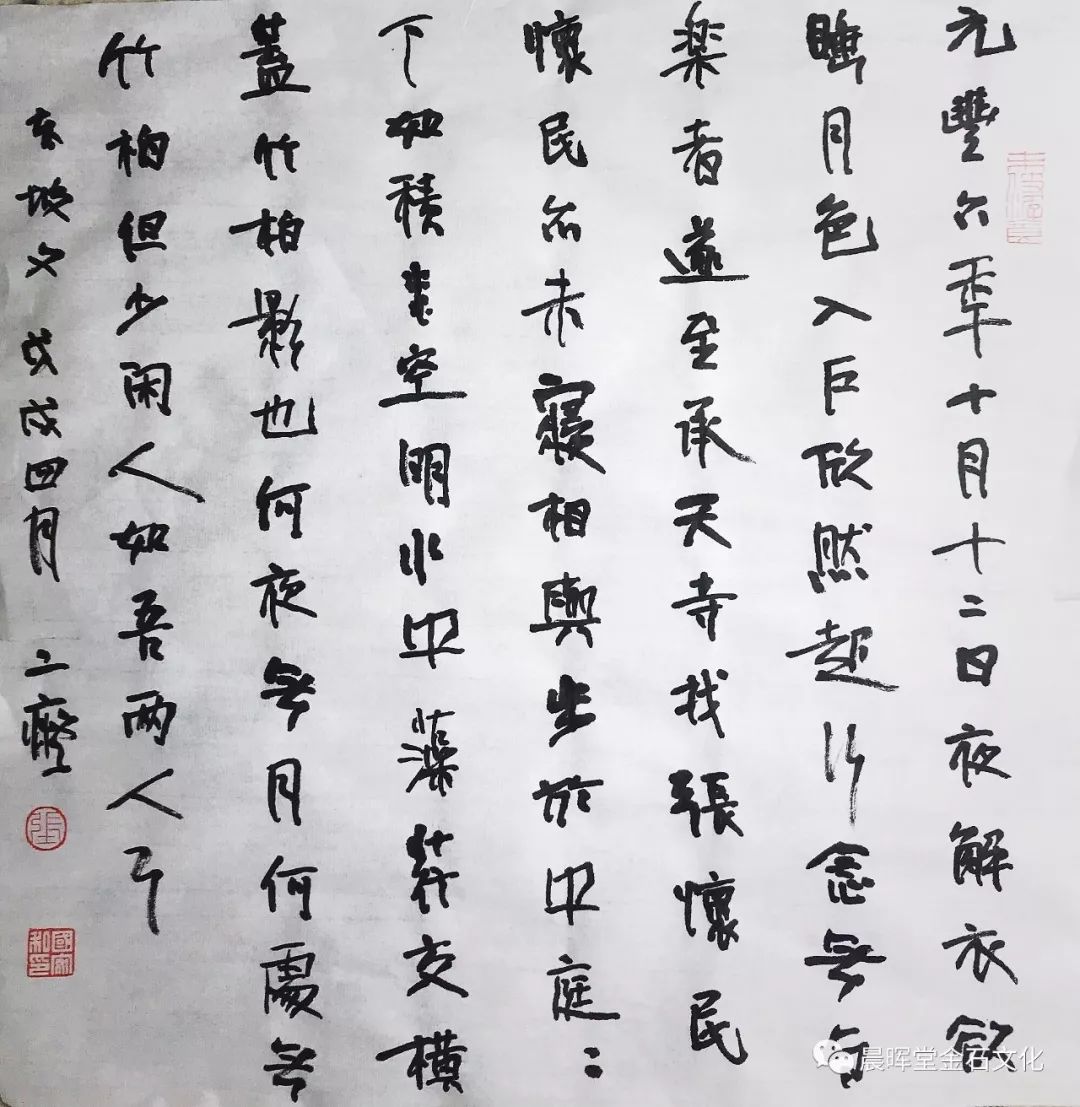 元豐六秊十月十二日夜解衣欲
睡月色入戶欣然起行念無与
楽者遂至承天寺找張懷民
懷民亦未寢相與步於中庭〻
下如積水空明水中藻荇交橫
蓋竹柏影也何夜無月何處無
竹柏但少闲人如吾两人耳
东坡文 戊戌四月 二癡
張
晨晖堂金石文化